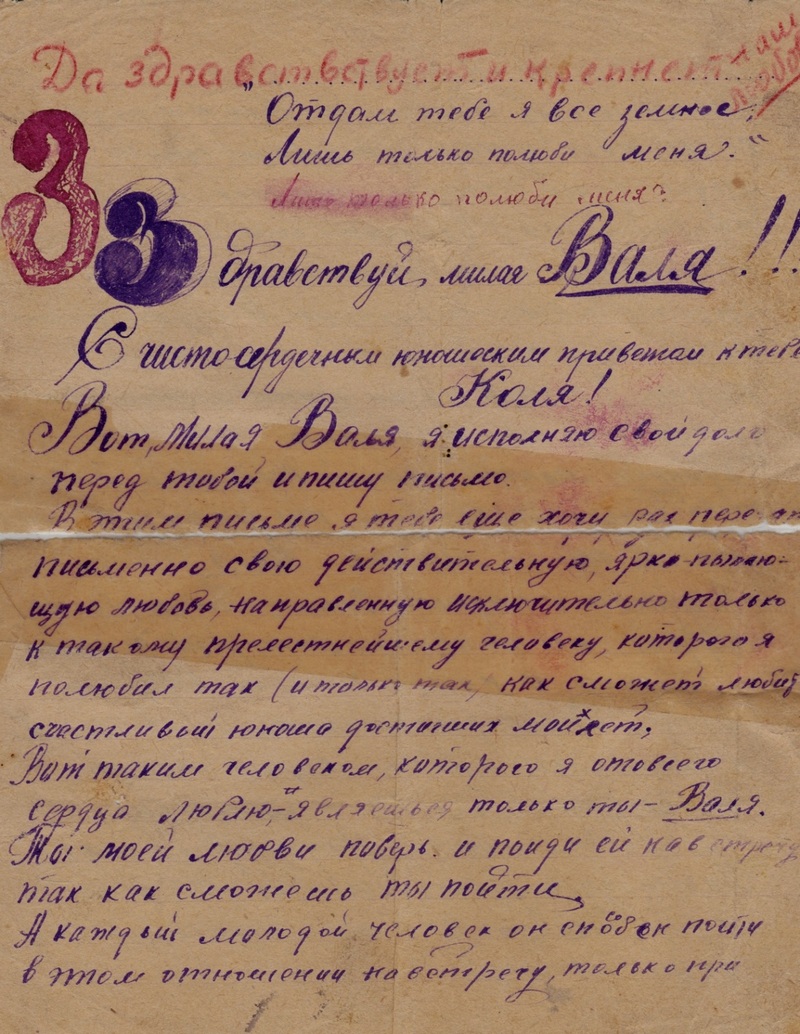 Да здравствует и крепнет наша любовь
"Отдам тебе я все земное,
Лишь только полюби меня."
Лишь только полюби меня"
З Здравствуй, милая Валя!!!
С чистосердечным юношеским приветом к тебе
Коля!
Вот, милая Валя, я исполняю свой долг
перед тобой и пишу письмо.
В этим письме я тебе еще хочу раз
письменно свою действительную, ярко пылаю-
щую любовь, направленную исключительно только
к такому прелестнейшему человеку, которого я
полюбил так (и только так) как сможет любит
счастливый юноша достигших моих лет.
Вот таким человеком, которого я ото всего
сердца люблю,-"являешься только ты - Валя.
Ты моей любви поверь. и поиди ей на встречу
так как сможешь ты пойти.
А каждый молодой человек он способен пойти
в этом отношении на встречу, только при